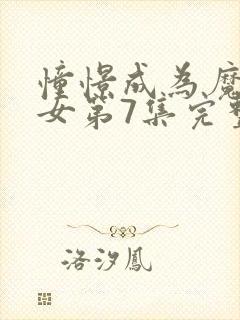 憧憬成为魔
女第7集完整
洛汐鳳